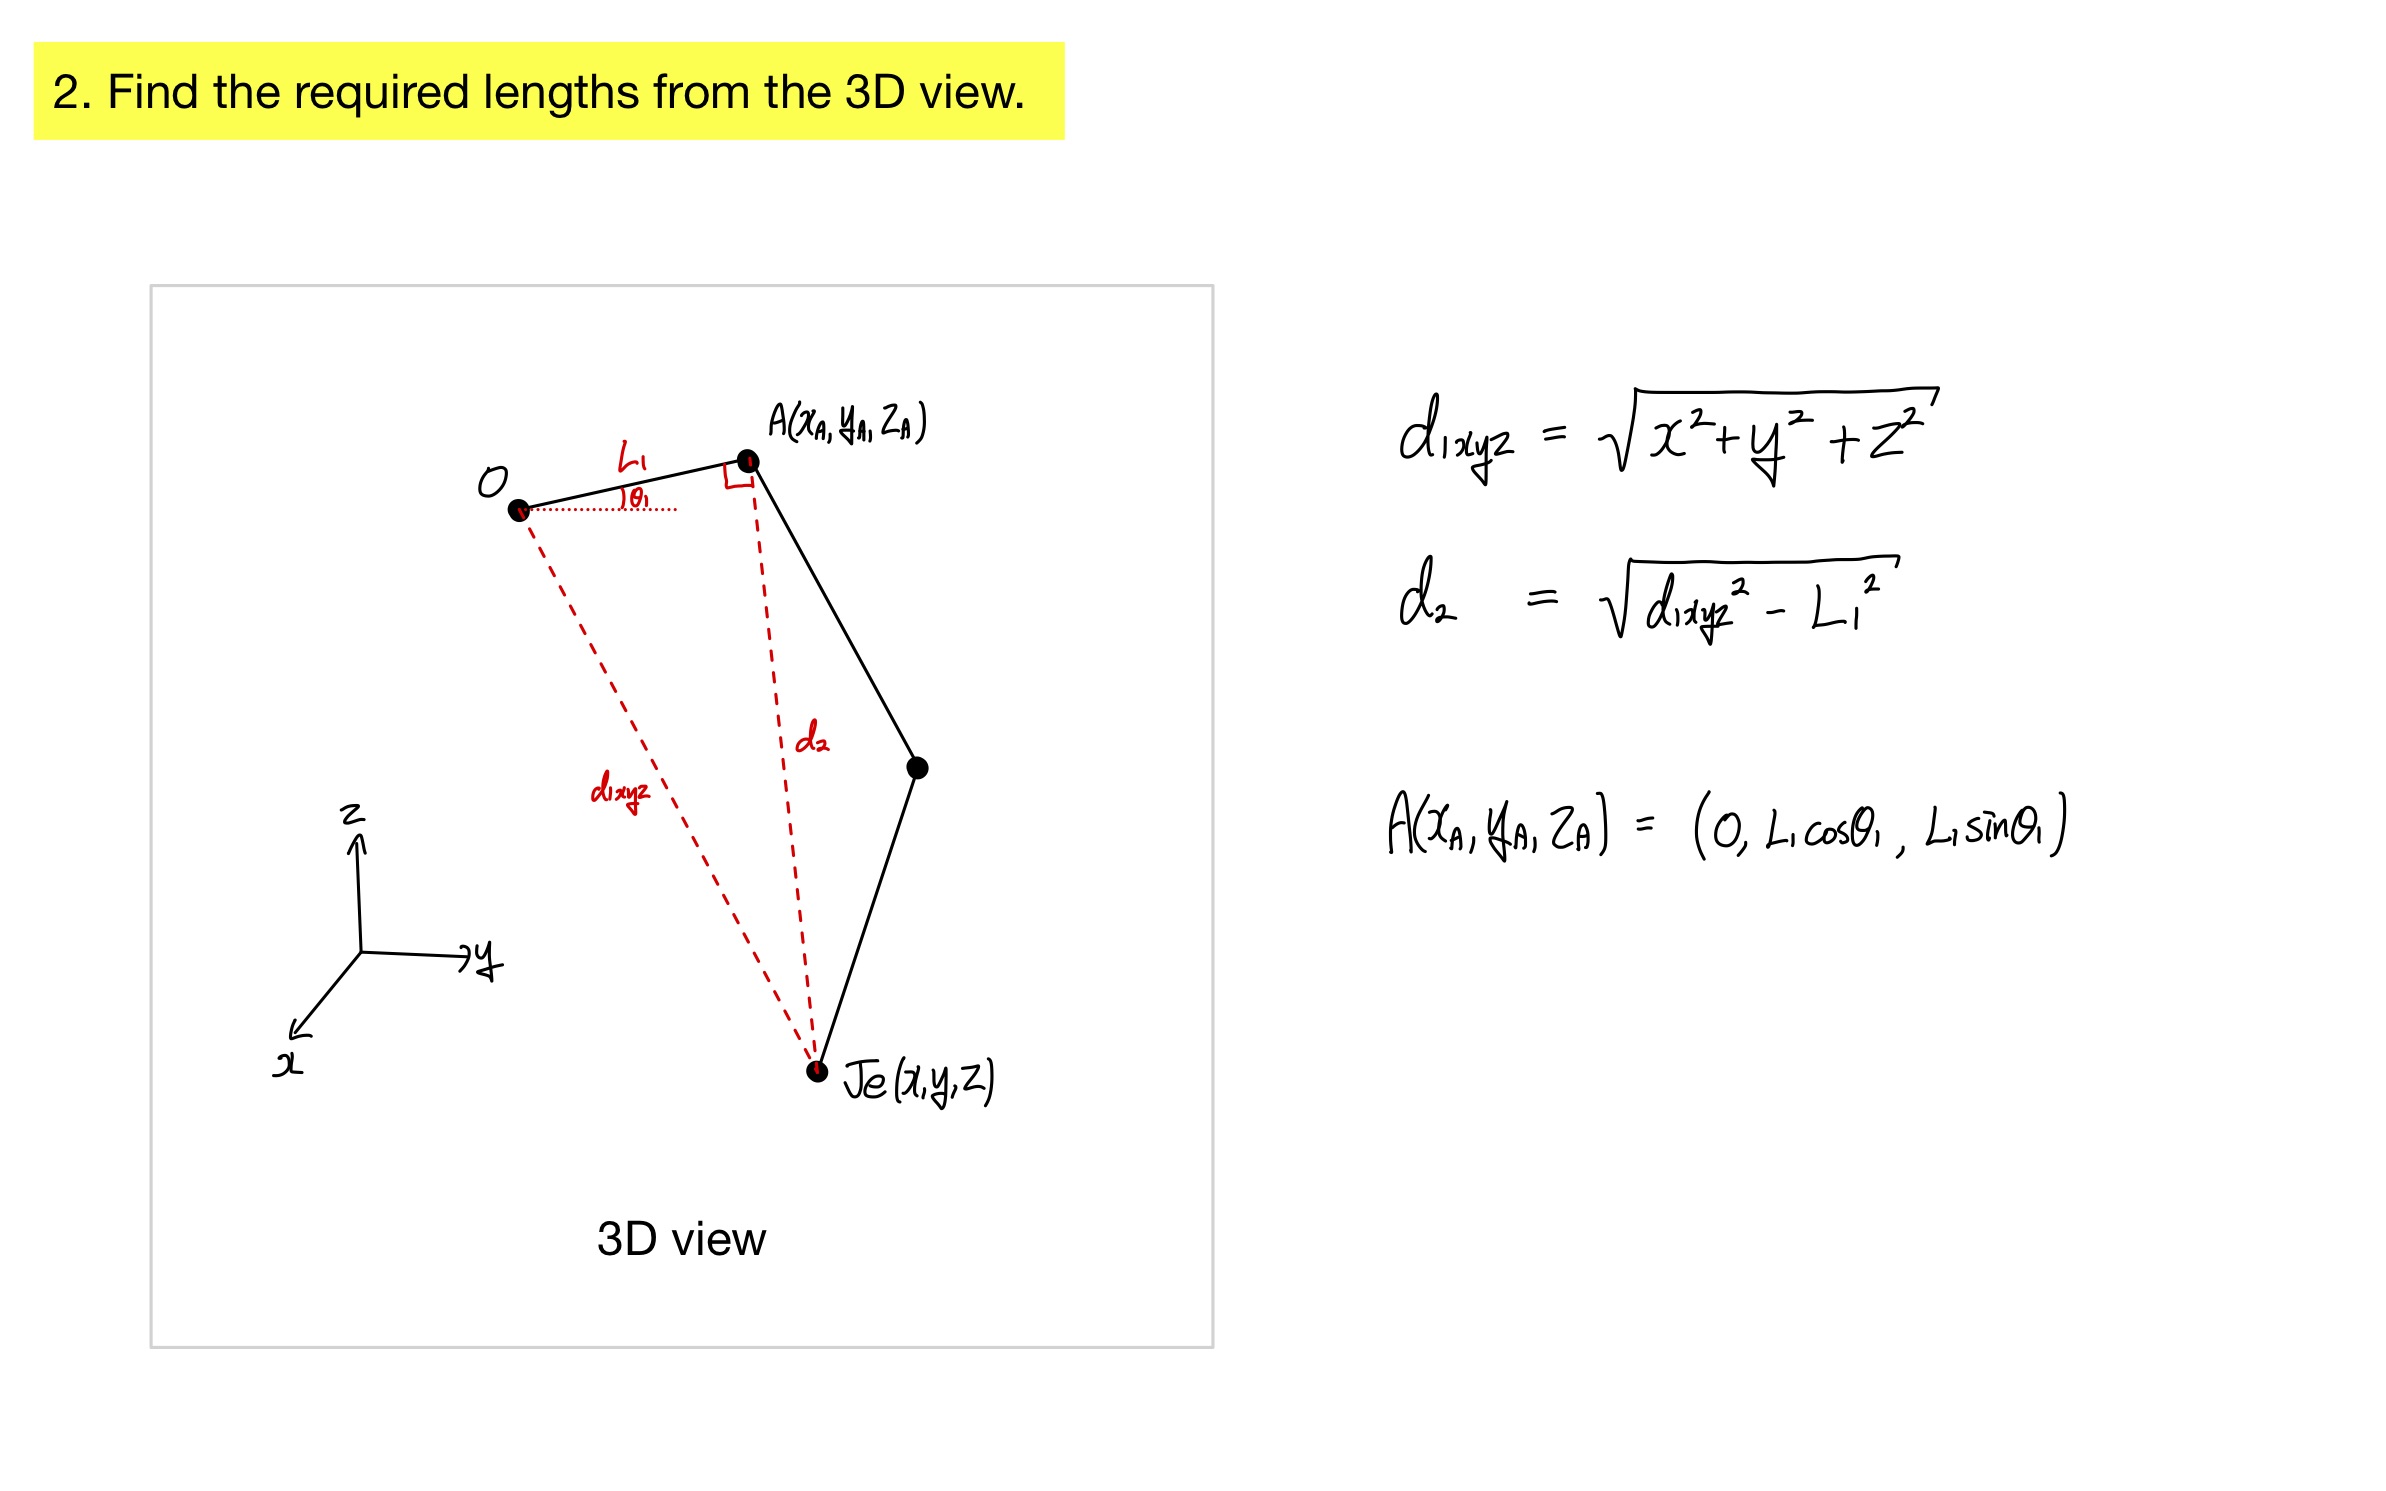 2. Find the required lengths from the 3D view.
A(x_A, y_A, z_A)
O
L₁
θ₁
d₂
d₁xyz
z
y
x
Je(x,y,z)
3D view
d₁xyz = √(x² + y² + z²)
d₂ = √(d₁xyz² - L₁²)
A(x_A, y_A, z_A) = (0, L₁cosθ₁, L₁sinθ₁)